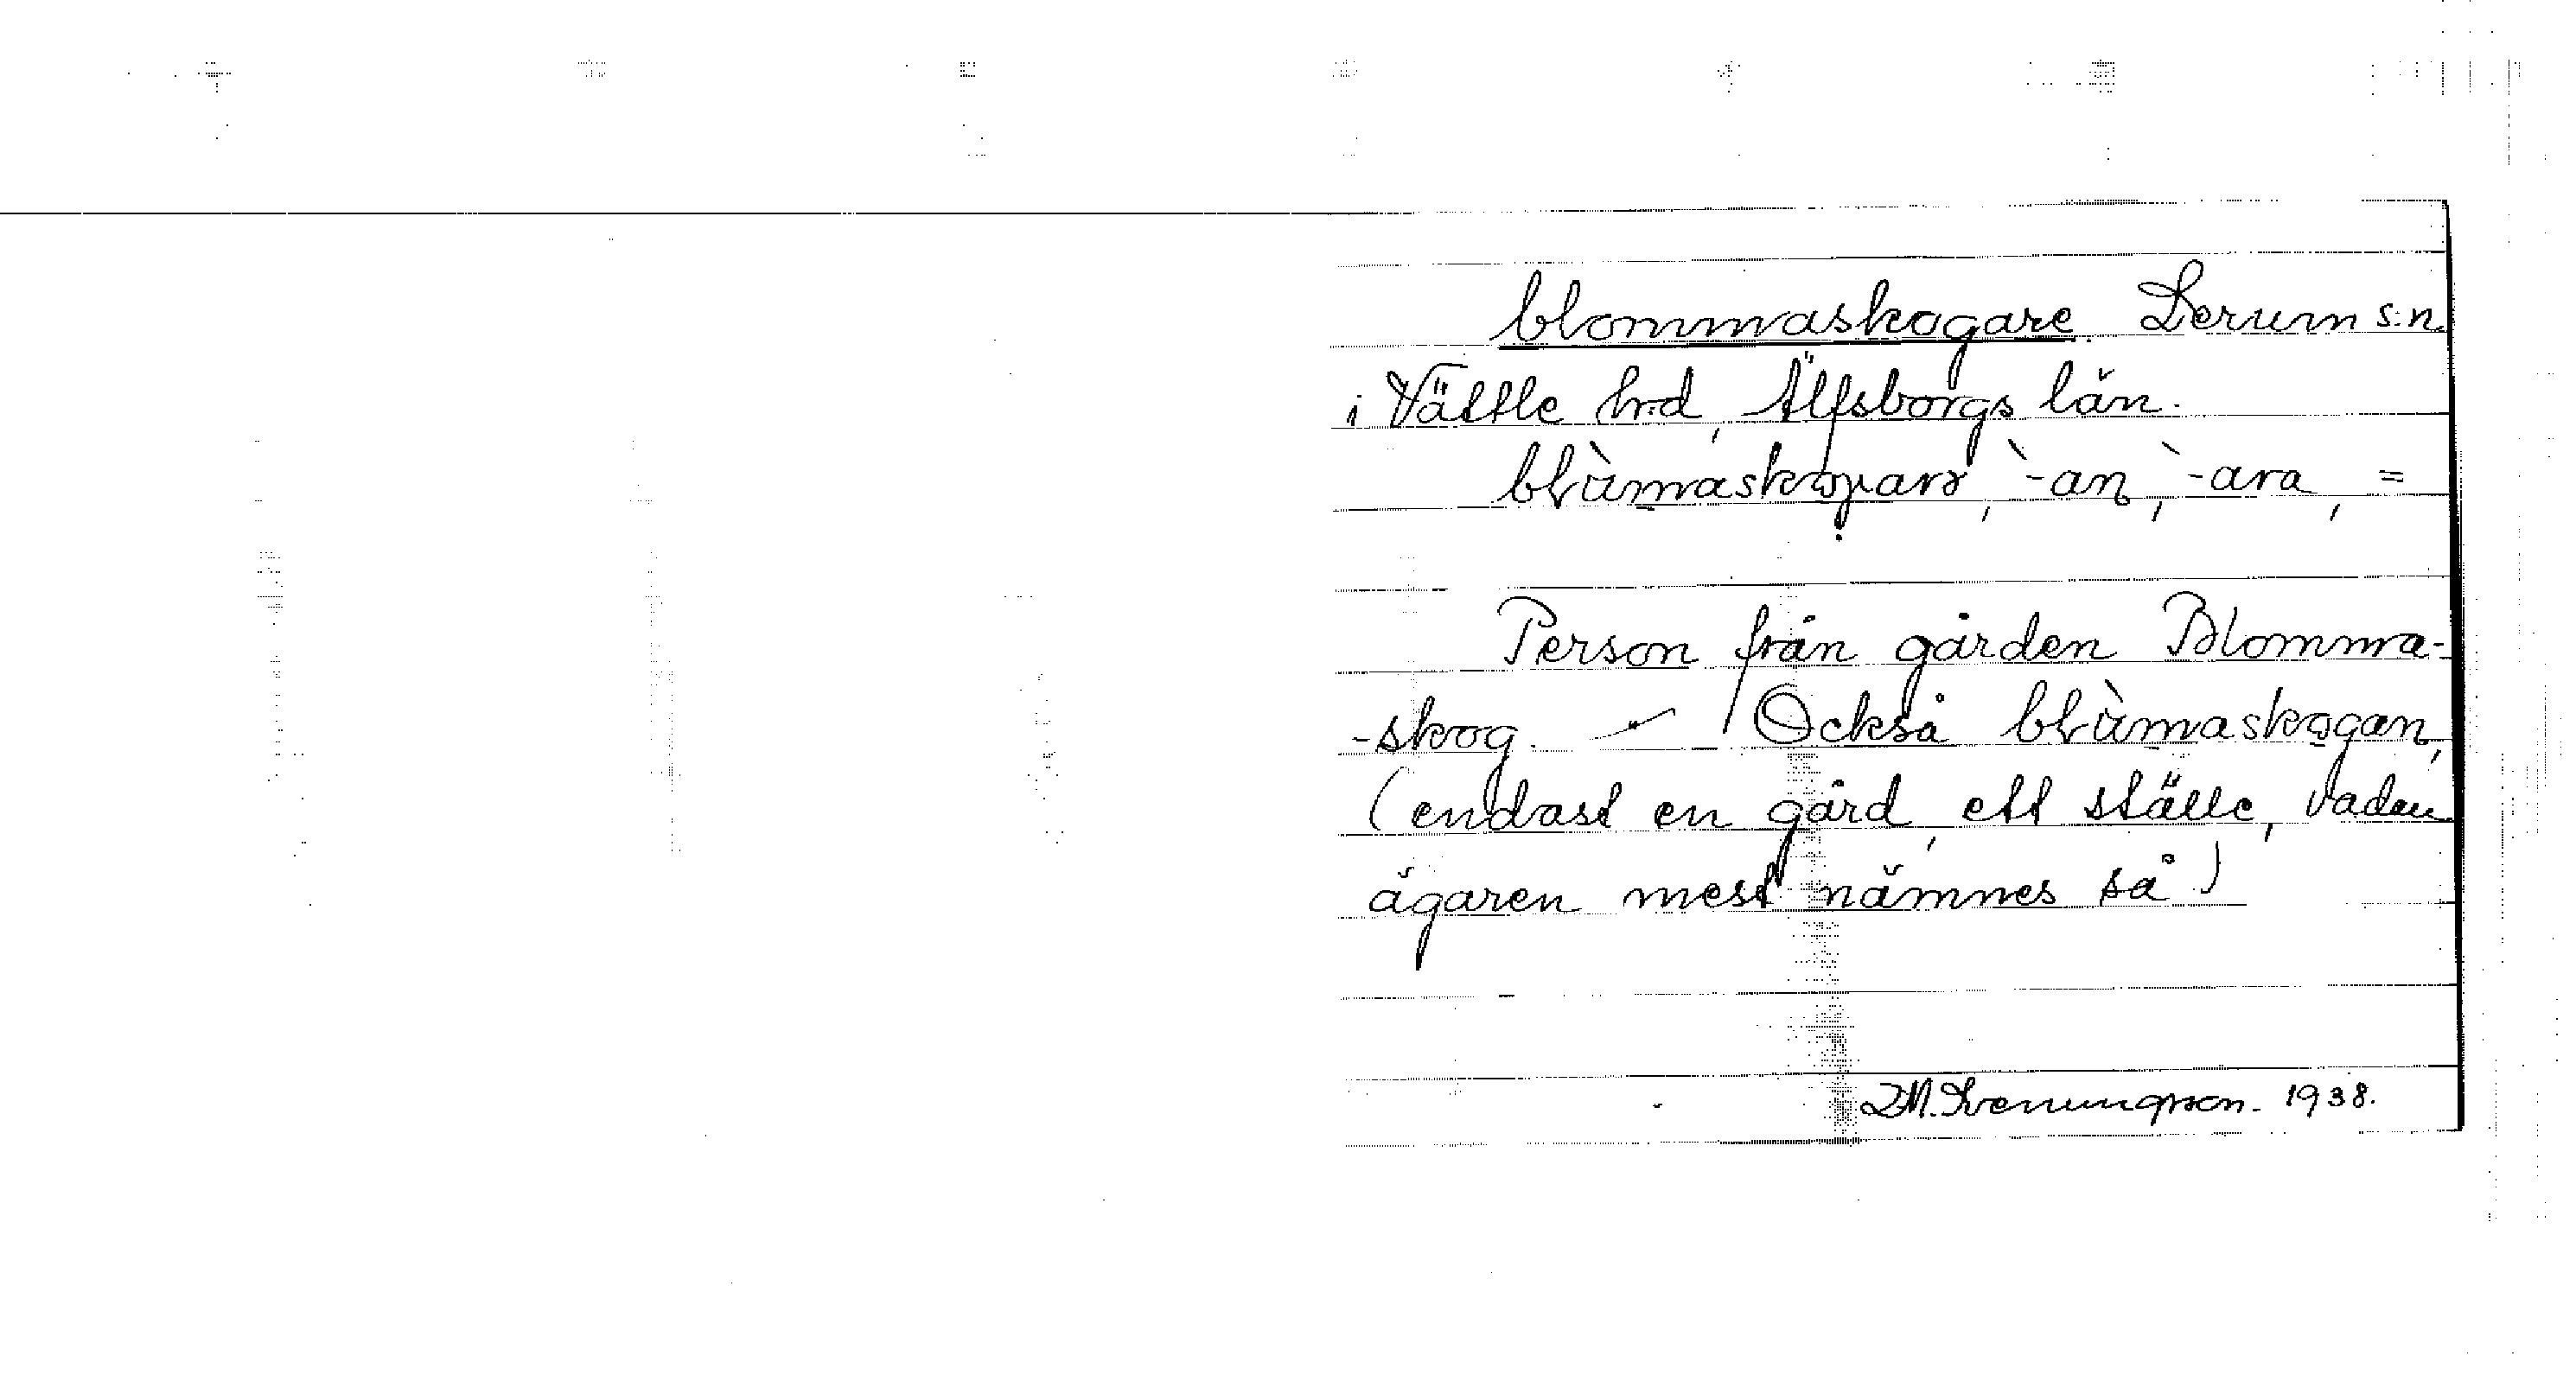 blommaskogare. Lerum s:n.
i Vättle h:d, Älfsborgs län.
blùmaskogarə, `-an, `-ara, =
Person från gården Blomma-
-skog. — Också blùmaskogan,
(endast en gård, ett ställe, vadan
ägaren mest nämnes så)
Svenungsson. 1938.